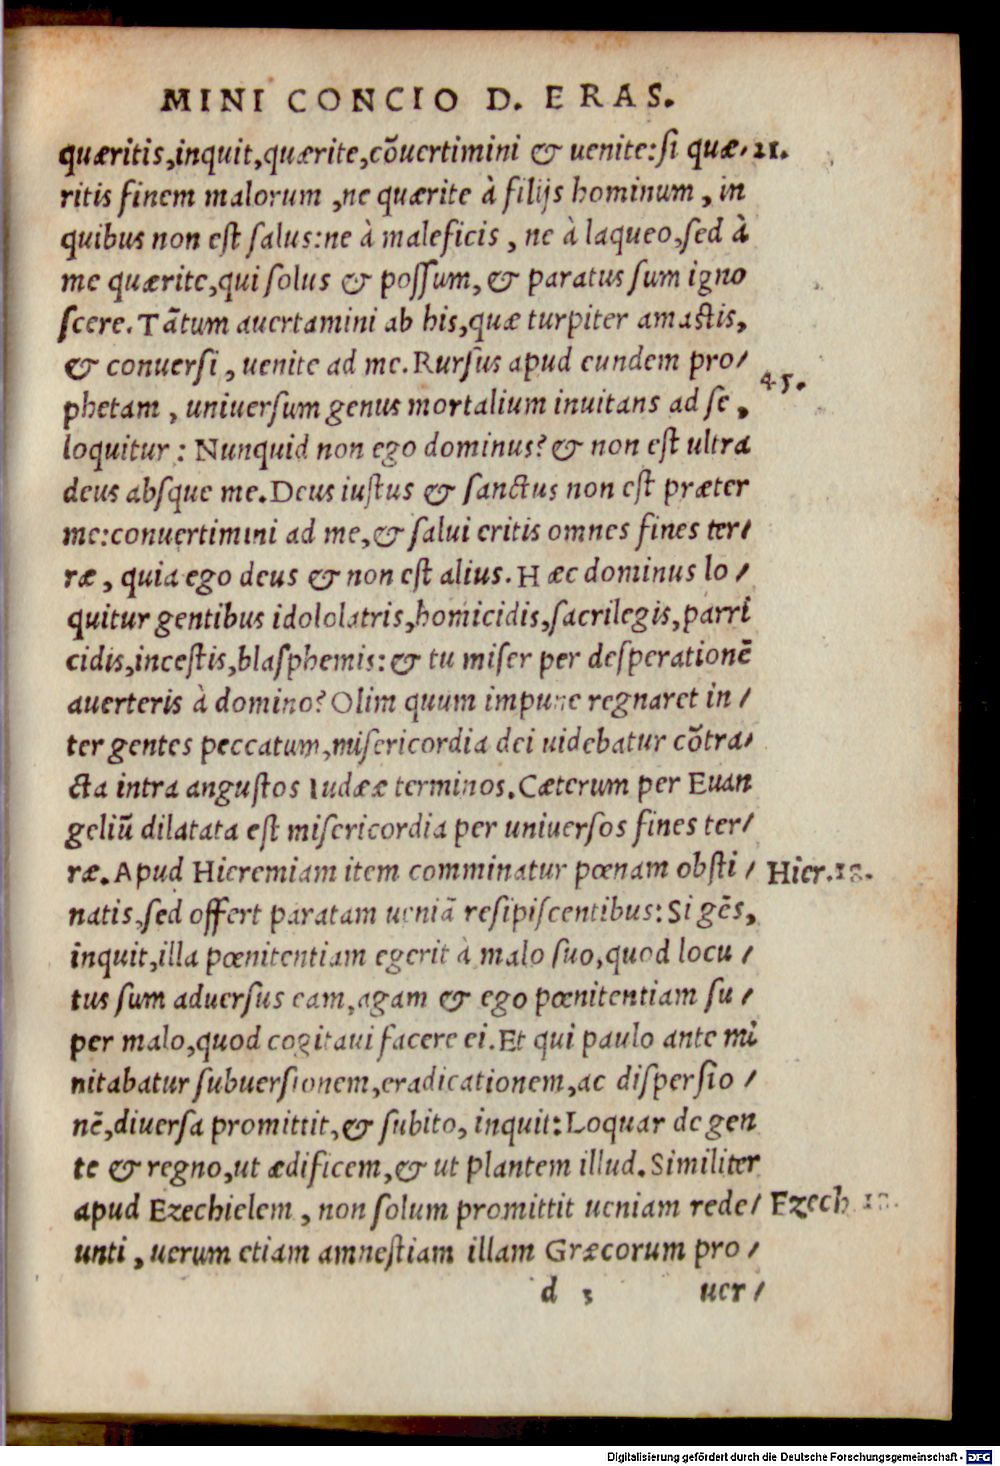 MINI CONCIO D. ERAS.
quæritis,inquit,quærite,cõuertimini & uenite:si quæ- 21.
ritis finem malorum ,ne quærite à filijs hominum , in
quibus non est salus:ne à maleficis , ne à laqueo,sed à
me quærite,qui solus & possum, & paratus sum igno
scere.Tãtum auertamini ab his,quæ turpiter amastis,
& conuersi , uenite ad me.Rursus apud eundem pro/
45.
phetam , uniuersum genus mortalium inuitans ad se ,
loquitur : Nunquid non ego dominus? & non est ultra
deus absque me.Deus iustus & sanctus non est præter
me:conuertimini ad me,& salui eritis omnes fines ter/
ræ , quia ego deus & non est alius. Hæc dominus lo /
quitur gentibus idololatris,homicidis,sacrilegis,parri
cidis,incestis,blasphemis: & tu miser per desperationẽ
auerteris à domino? Olim quum impune regnaret in /
ter gentes peccatum,misericordia dei uidebatur cõtra/
cta intra angustos Iudææ terminos.Cæterum per Euan
geliũ dilatata est misericordia per uniuersos fines ter/
ræ. Apud Hieremiam item comminatur pœnam obsti / Hier.18.
natis,sed offert paratam ueniã resipiscentibus: Si gẽs,
inquit,illa pœnitentiam egerit à malo suo,quod locu /
tus sum aduersus eam,agam & ego pœnitentiam su /
per malo,quod cogitaui facere ei.Et qui paulo ante mi
nitabatur subuersionem,eradicationem,ac dispersio /
nẽ,diuersa promittit,& subito, inquit: Loquar de gen
te & regno,ut ædificem,& ut plantem illud. Similiter
apud Ezechielem , non solum promittit ueniam rede/ Ezech
unti , uerum etiam amnestiam illam Græcorum pro /
d 3 uer /
Digitalisierung gefördert durch die Deutsche Forschungsgemeinschaft - DFG